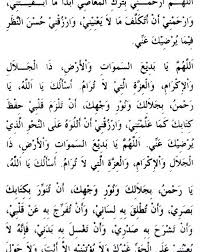 اللَّهُمَّ ارْحَمْنِي بِتَرْكِ الْمَعَاصِي أَبَدًا مَا أَبْقَيْتَنِي،
وَارْحَمْنِي أَنْ أَتَكَلَّفَ مَا لَا يَعْنِينِي، وَارْزُقْنِي حُسْنَ النَّظَرِ
فِيمَا يُرْضِيكَ عَنِّي.
اللَّهُمَّ يَا بَدِيعَ السَّمَوَاتِ وَالْأَرْضِ، ذَا الْجَلَالِ
وَالْإِكْرَامِ، وَالْعِزَّةِ الَّتِي لَا تُرَامُ، أَسْأَلُكَ يَا اللَّهُ، يَا
رَحْمَنُ، بِجَلَالِكَ وَنُورِ وَجْهِكَ، أَنْ تُلْزِمَ قَلْبِي حِفْظَ
كِتَابِكَ كَمَا عَلَّمْتَنِي، وَارْزُقْنِي أَنْ أَتْلُوَهُ عَلَى النَّحْوِ الَّذِي
يُرْضِيكَ عَنِّي.
اللَّهُمَّ يَا بَدِيعَ السَّمَوَاتِ وَالْأَرْضِ، ذَا الْجَلَالِ
وَالْإِكْرَامِ، وَالْعِزَّةِ الَّتِي لَا تُرَامُ، أَسْأَلُكَ يَا اللَّهُ،
يَا رَحْمَنُ، بِجَلَالِكَ وَنُورِ وَجْهِكَ، أَنْ تُنَوِّرَ بِكِتَابِكَ
بَصَرِي، وَأَنْ تُطْلِقَ بِهِ لِسَانِي، وَأَنْ تُفَرِّجَ بِهِ عَنْ قَلْبِي،
وَأَنْ تَشْرَحَ بِهِ صَدْرِي، وَأَنْ تَغْسِلَ بِهِ بَدَنِي، لِأَنَّهُ لَا